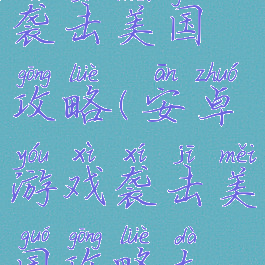 袭击美国
gōng lüè ān zhuó
攻略(安卓
yóu xì xí jī měi
游戏袭击美
guó gōng lüè dà
国攻略大